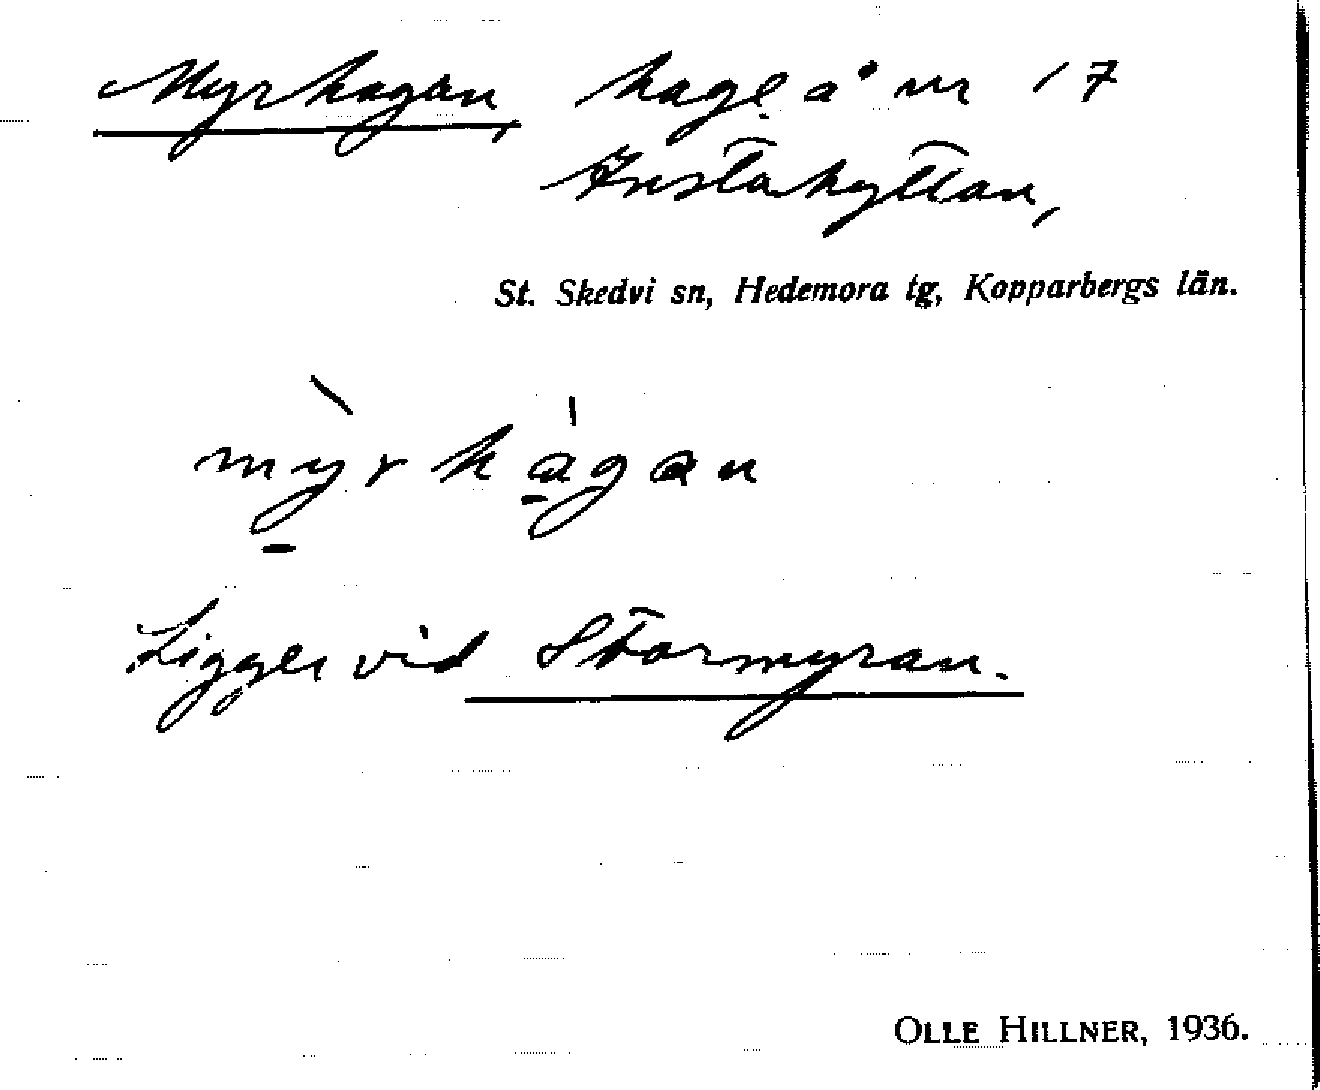 Myrhagan, hage å nr 17
Knstahyttan,
St. Skedvi sn, Hedemora tg, Kopparbergs län.
mỳrhágan
Ligger vid Stormyran.
OLLE HILLNER, 1936.